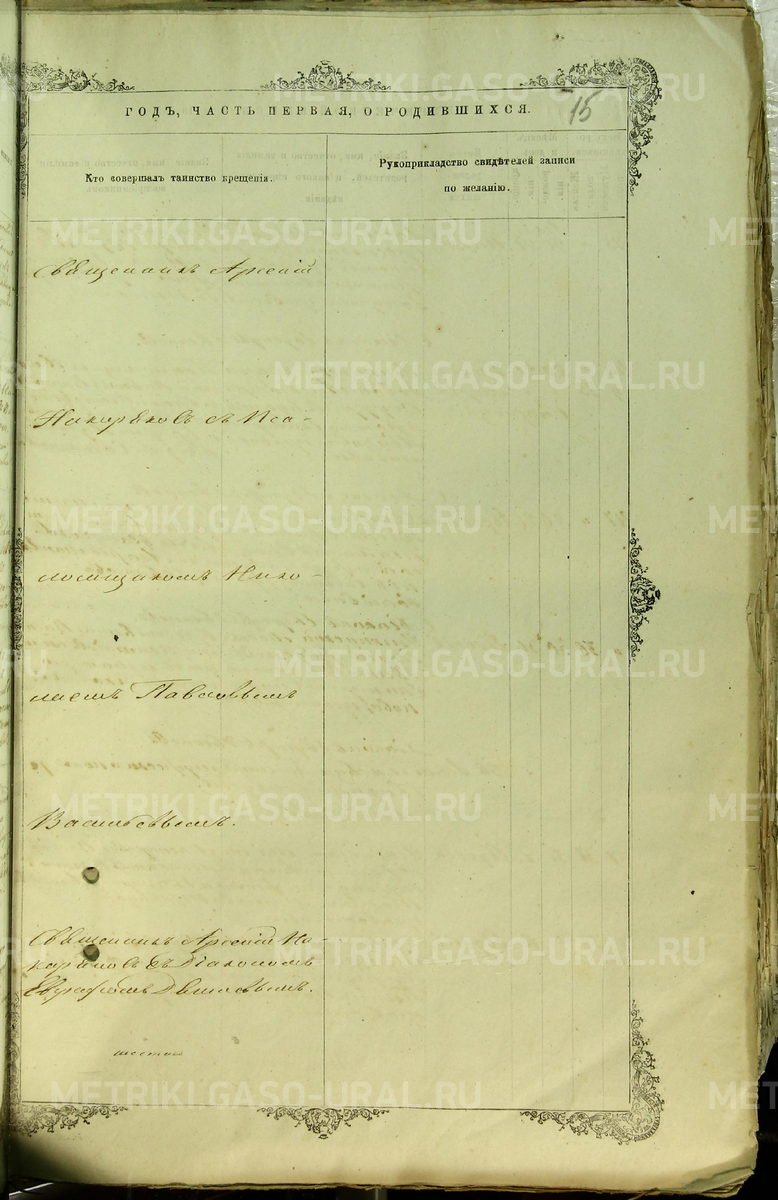 ГОДЪ, ЧАСТЬ ПЕРВАЯ, О РОДИВШИХСЯ.
75
Кто совершалъ таинство крещенія.
Рукоприкладство свидѣтелей записи
по желанію.
Священникъ Арсеній
Накаряковъ съ Пса-
ломщикомъ Нико-
лаемъ Павловымъ
Васильевымъ.
Священникъ Арсеній На-
каряковъ съ Діакономъ
шестой
METRIKI.GASO-URAL.RU